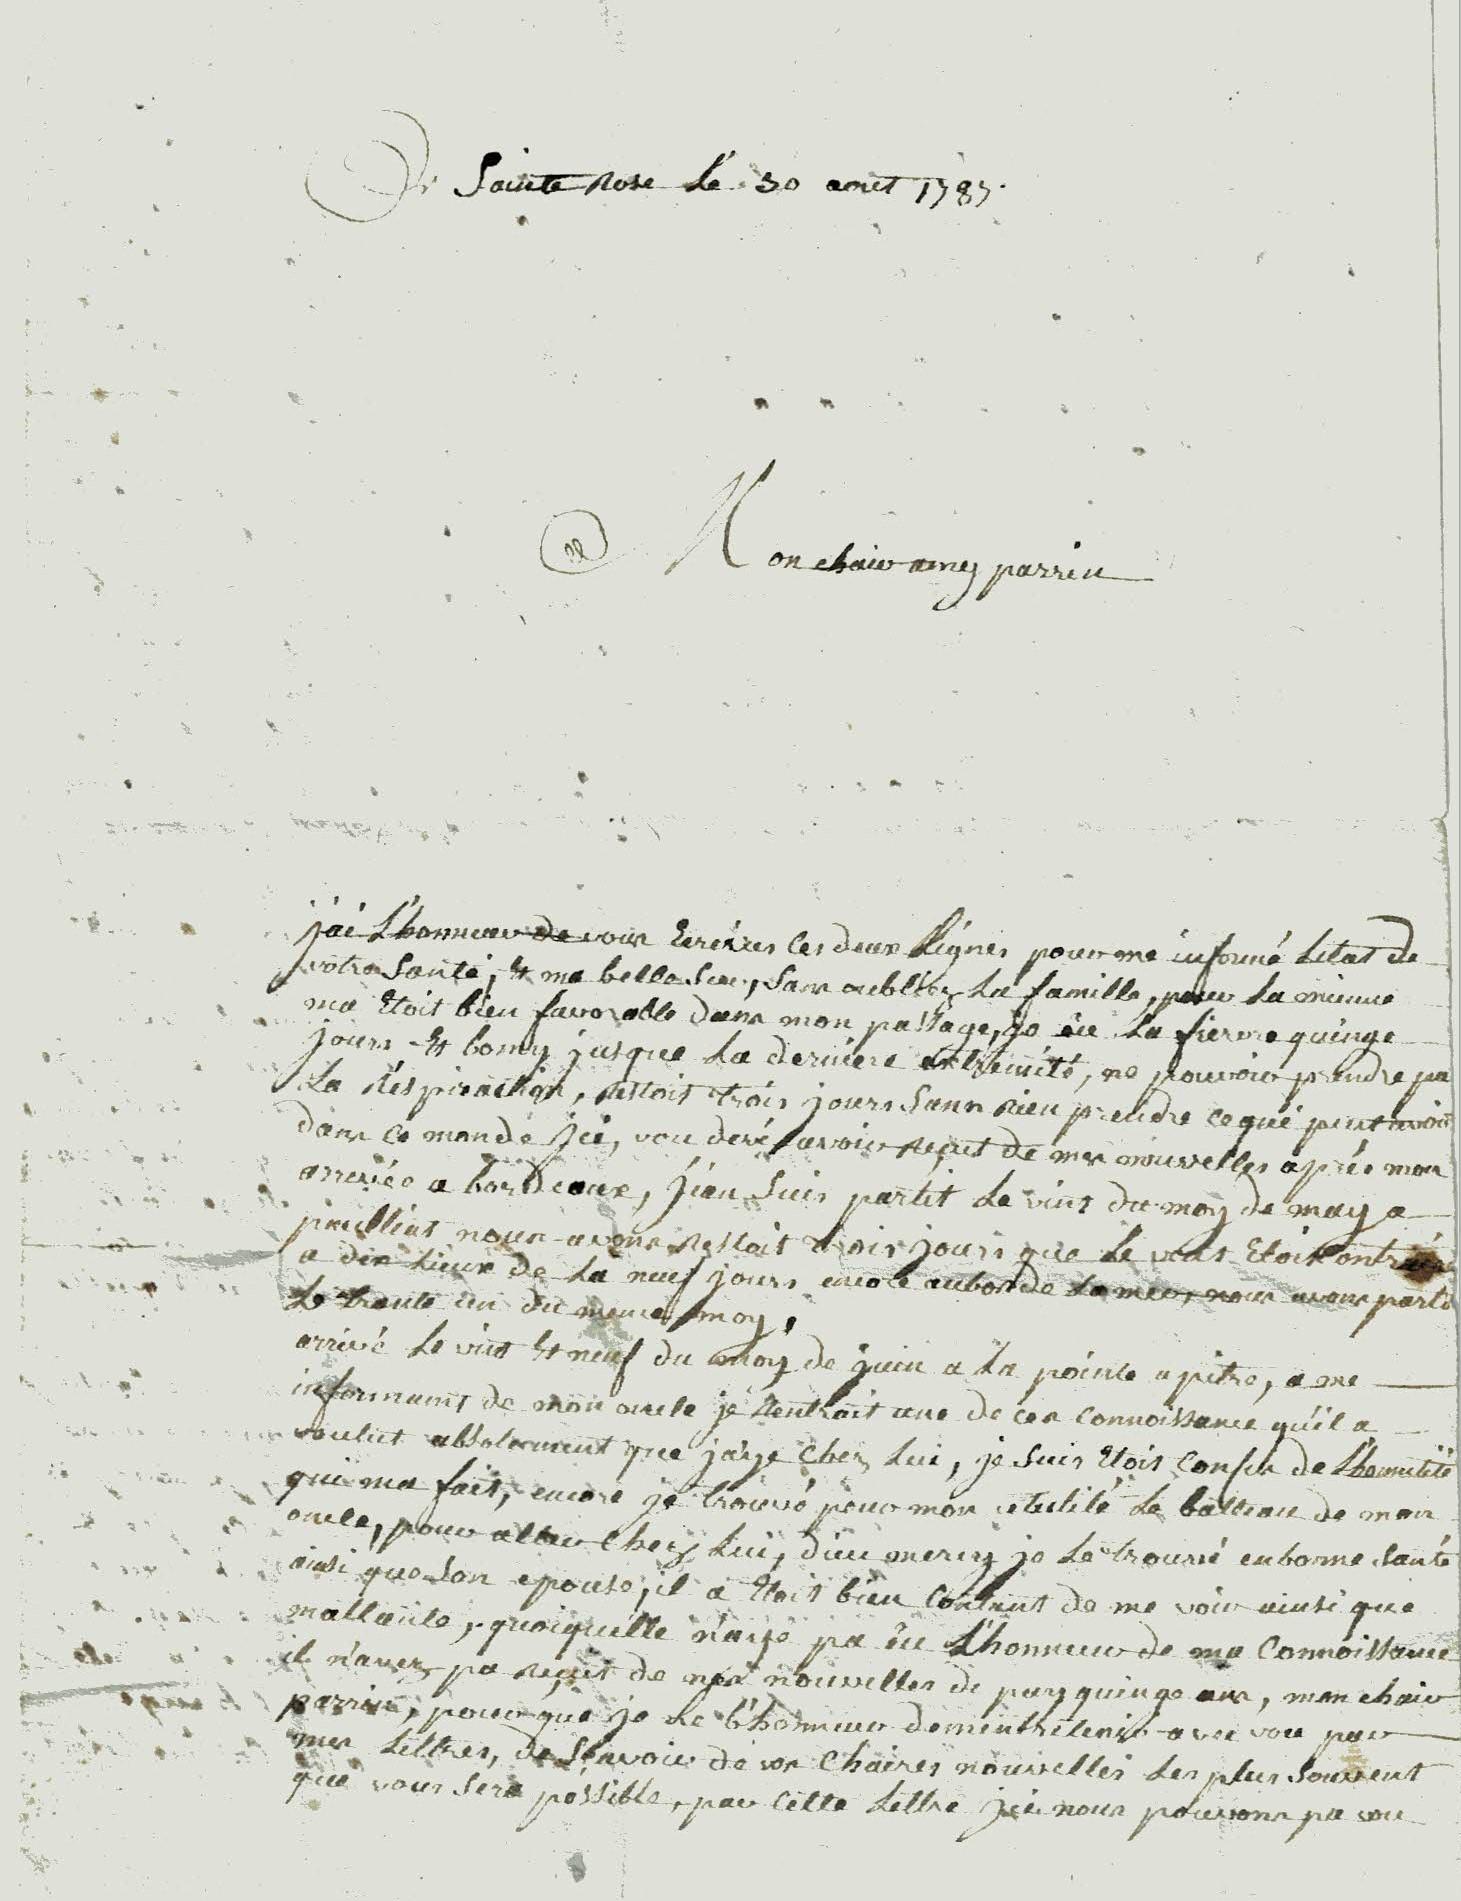 De Sainte Rose Le 30 aout 1787.
Mon chair amy parrin
j'ai L'honneur de vour Ecrires Ces deux Lignes pour me informé Letat de
votre Santé, Et ma belle Seur, Sans oublier La famille, pour La mienne
ma Etoit bien favorable dans mon passage, jo eu La fievre quinze
jours Et bomy jusque La derniere extremité, ne pouvoir prendre pa
La Réspiration, restoit trois jours Sans Rien prendre ce qué peut avoir
dans ce monde Jci, vou devé avoir reçut de mes nouvelles aprés mon
arrivée a bordeaux, J'ean Suis partit Le vint du moy de may a
paulliat nour avons Restait trois jours que Le vent Etoit Contraire
a dix Lieux de La neuf jours encore au bor de La mer, nour avons parti
Le trante un du meme moy.
arrivé Le vint Et neuf du moy de juin a La pointe a pitre, a me
informant de mon oncle je Rentrait une de ces Connoissance qu'il a
voulut absolument que jaye Chez Lui, je Suis Etoit Confus de L'hounêtité
qui ma fait, encore je trouvé pour mon utulité Le batteau de mon
oncle, pour aller Chez Lui, dieu mercy je Le trouvé en bonne Santé
ainsi que Son epouse, il a Etoit bien Contant de me voir ainsi que
mattante, quoiquélle n'aye pa êu L'honneur de ma Connoissance
il n'avez pa reçut de mes nouvelles di puy quinze ans, mon chair
parrin, pour que je Le L'honneur de mentretenir avec vou par
mes Lettres, de Scavoir dé vos Chaires nouvelles Les plus Souvent
que vous Sera possible, par Cette Lettre jci nour pouvons pa vou